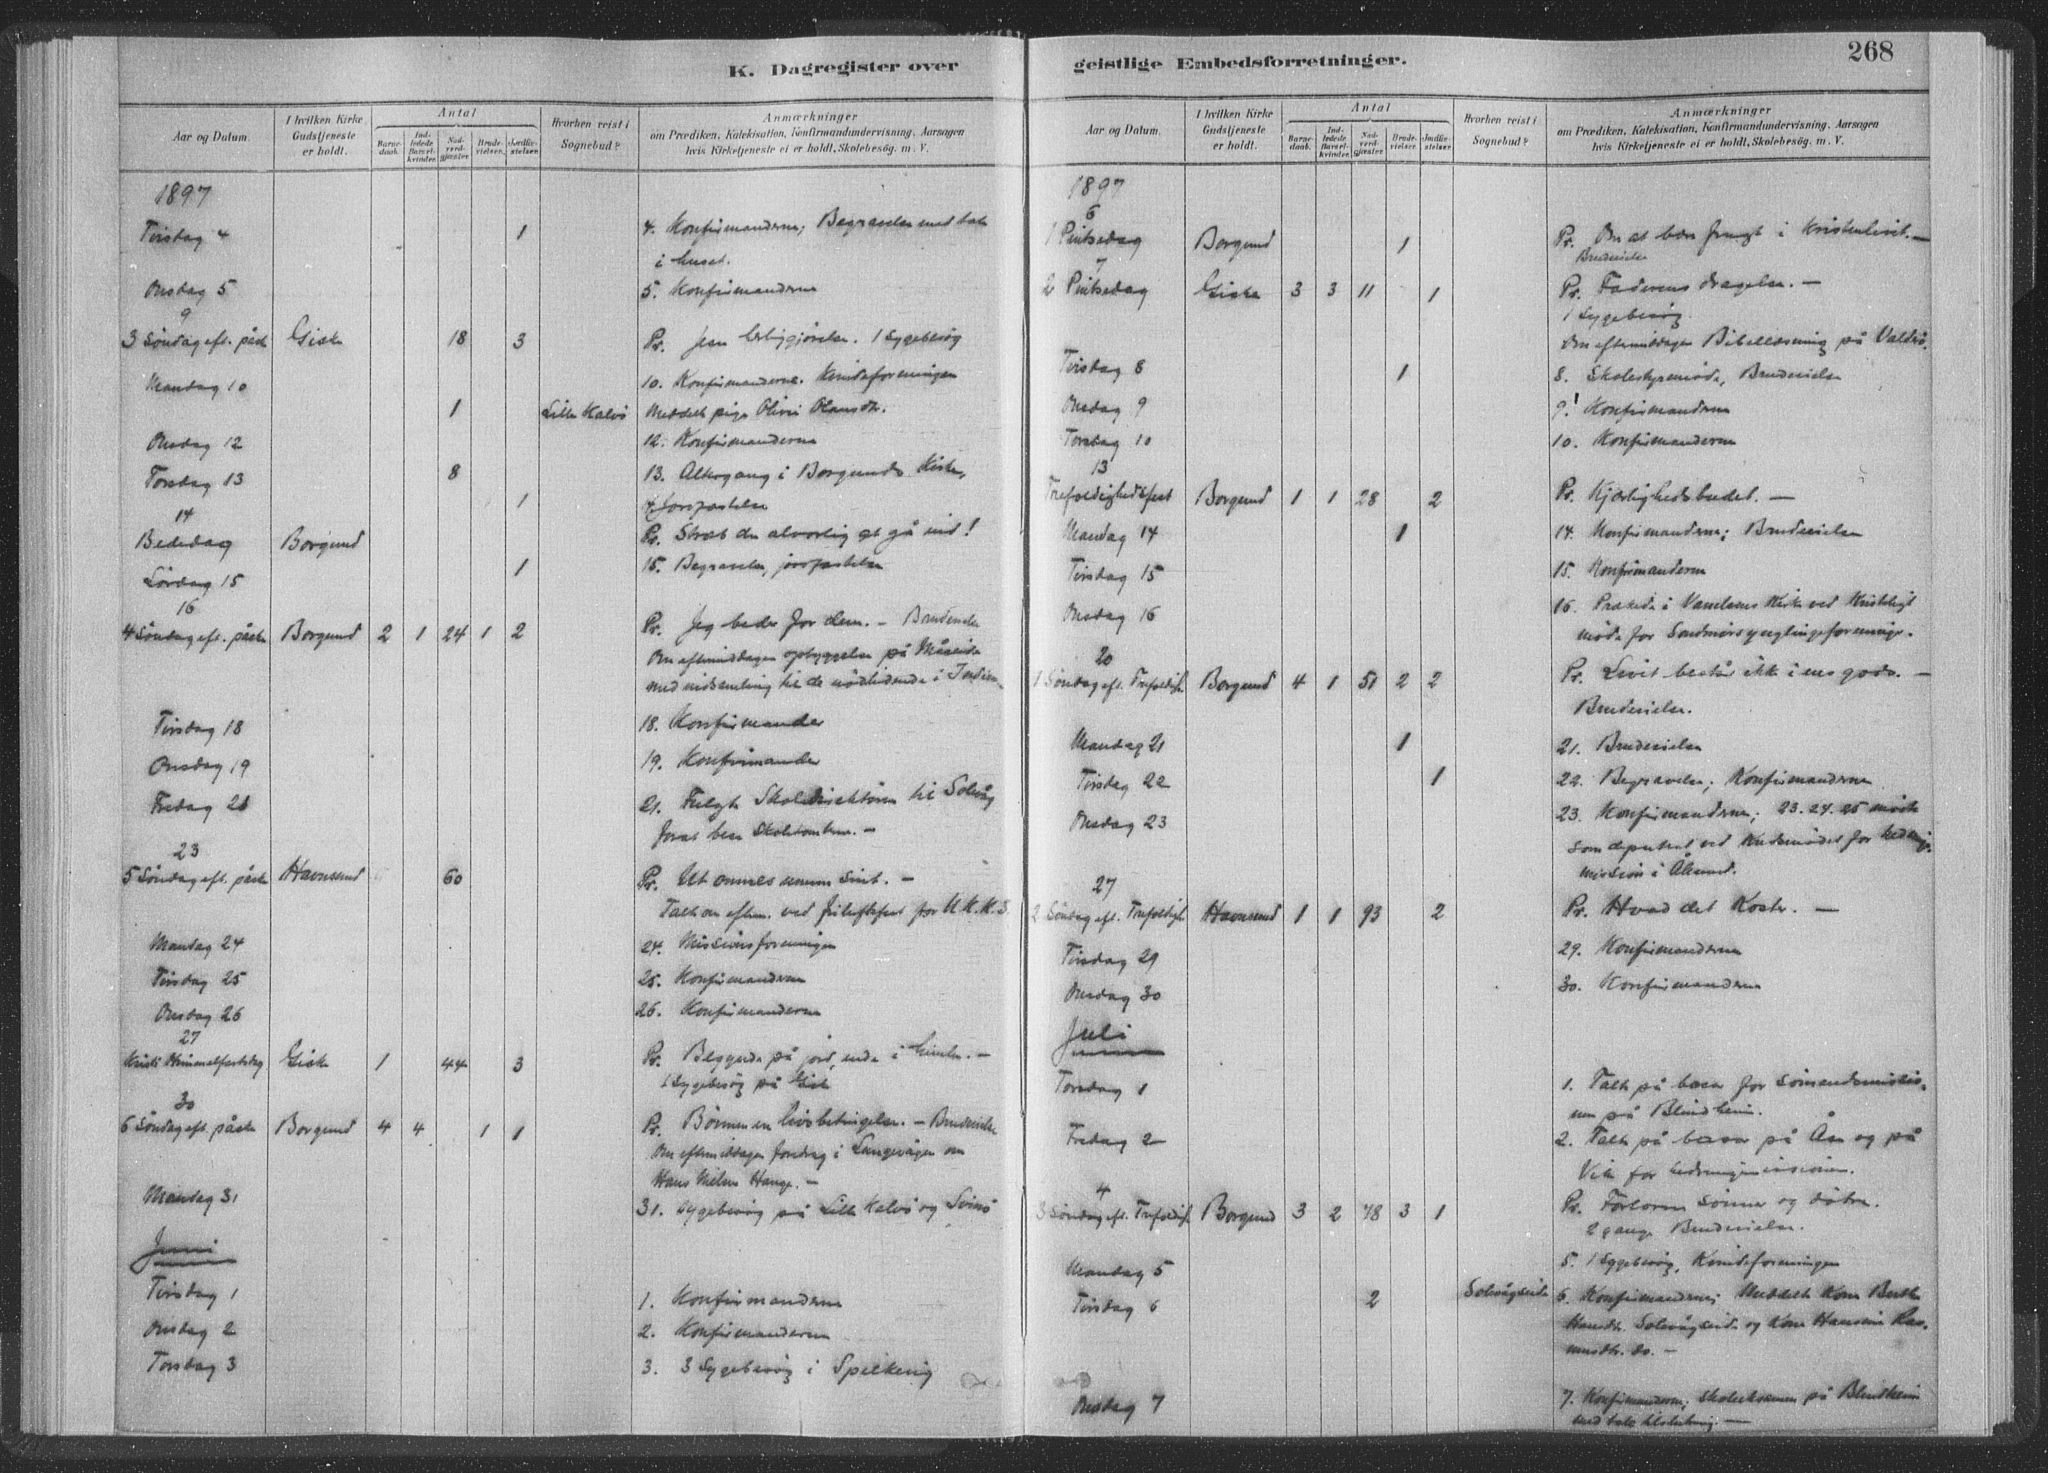 K. Dagregister over
Aar og Datum.
I hvilken Kirke Gudstjeneste er holdt.
Antal
Barne-daab.
Ind-ledede Barsel-kvinder.
Nad-verd-gjæster.
Brude-vielser.
Jordfæ-stelser.
Hvorhen reist i Sognebud?
Anmærkninger
om Prædiken, Katekisation, Konfirmandundervisning, Aarsagen
hvis Kirketjeneste ei er holdt, Skolebesøg. m. V.
1897
Tirsdag 4 1 4. Konfirmanderne; Begravelse med tale
i huset.
Onsdag 5 5. Konfirmanderne
9
3 Søndag eft. påske Giske 18 3 Pr. Jesu 1 Sygebesøg
Mandag 10 10. Konfirmanderne. Kvindeforeningen
1 Lille Kalvö Meddelt pige Olivie Olausdtr.
Onsdag 12 12. Konfirmanderne
Torsdag 13 8 13. Altergang i Borgunds Kirke,
1 Jordfæstelse
14
Bededag Borgund Pr. Stræb du alvorlig at gå ind!
Lördag 15 1 15. Begravelse, jordfæstelse
16
4 Søndag eft. påske Borgund 2 1 24 1 2 Pr. Jeg beder for dem. - Brudevielse
Om eftermiddagen opbyggelse på Måseide
med indsamling til de nødlidende i Indien.
Tirsdag 18 18. Konfirmander
Onsdag 19 19. Konfirmander
Fredag 21 21. Fulgte Skoledirektören til Solvåg
forat bese Skoletomten. -
23
5 Søndag eft. påske Havnsund 60 Pr. Ut omnes unum sint. -
Talte om efterm. ved friluftsfest for U.K.K.S.
Mandag 24 24. Missionsforeningen
Tirsdag 25 25. Konfirmanderne
Onsdag 26 26. Konfirmanderne
27
Kristi Himmelfartsdag Giske 1 44 3 Pr. Begynde på jord, ende i himlen. -
1 Sygebesøg på Giske
30
6 Søndag eft. påske Borgund 4 4 1 1 Pr. Bönnen en livsbetingelse. - Brudevielse
Om eftermiddagen foredrag i Langevågen om
Hans Nielsen Hauge. -
Mandag 31 31. Sygebesøg på Lille Kalvö og Svinö
Juni
Tirsdag 1 1. Konfirmanderne
Onsdag 2 2. Konfirmanderne
Torsdag 3 3. 3 Sygebesøg i Spilkevig
geistlige Embedsforretninger.
268
Aar og Datum.
I hvilken Kirke Gudstjeneste er holdt.
Antal
Barne-daab.
Ind-ledede Barsel-kvinder.
Nad-verd-gjæster.
Brude-vielser.
Jordfæ-stelser.
Hvorhen reist i Sognebud?
Anmærkninger
om Prædiken, Katekisation, Konfirmandundervisning, Aarsagen
hvis Kirketjeneste ei er holdt, Skolebesøg. m. V.
1897
6
1 Pintsedag Borgund 1 Pr. Om at bære frugt i Kristenlivet. -
Brudevielse
7
2 Pintsedag Giske 3 3 11 1 Pr. Faderens dragelse. -
1 Sygebesøg.
Om eftermiddagen Bibellæsning på Valderö.
Tirsdag 8 1 8. Skolestyremöde, Brudevielse
Onsdag 9 9. Konfirmanderne
Torsdag 10 10. Konfirmanderne
13
Trefoldighedsfest Borgund 1 1 28 2 Pr. Kjærlighedsbudet. -
Mandag 14 1 14. Konfirmanderne; Brudevielse
Tirsdag 15 15. Konfirmanderne
Onsdag 16 16. Prækede i Vanelvens Kirke ved Kristeligt
møde for Søndmørs ynglingeforeninger.
20
1 Søndag eft. Trefoldigh. Borgund 4 1 51 2 2 Pr. Livet består ikke i ens gods. -
Brudevielse.
Mandag 21 1 21. Brudevielse
Tirsdag 22 1 22. Begravelse; Konfirmanderne
Onsdag 23 23. Konfirmanderne; 23. 24. 25 mødte
som deputeret ved Kredsmödet for hedninge-
mission i Ålesund.
27
2 Søndag eft. Trefoldigh. Havnsund 1 1 93 2 Pr. Hvad det koster. -
Tirsdag 29 29. Konfirmanderne
Onsdag 30 30. Konfirmanderne
Juli
Torsdag 1 1. Talte på basar for Sömandsmissio-
nen på Blindheim.
Fredag 2 2. Talte på basar på Åse og på
Vik for hedningemissionen.
4
3 Søndag eft. Trefoldigh. Borgund 3 2 78 3 1 Pr. Fortorne Sönner og dötre.
2 gange Brudevielse.
Mandag 5 5. 1 Sygebesøg, Kvindeforeningen
Tirsdag 6 2 Solevågseide 6. Konfirmanderne; Meddelt Kone Berthe
Hansdtr. Solevågseide og Kone Hansine Ras-
musdtr. do. -
Onsdag 7 7. Konfirmanderne; Skoleeksamen på Blindheim
med tale til